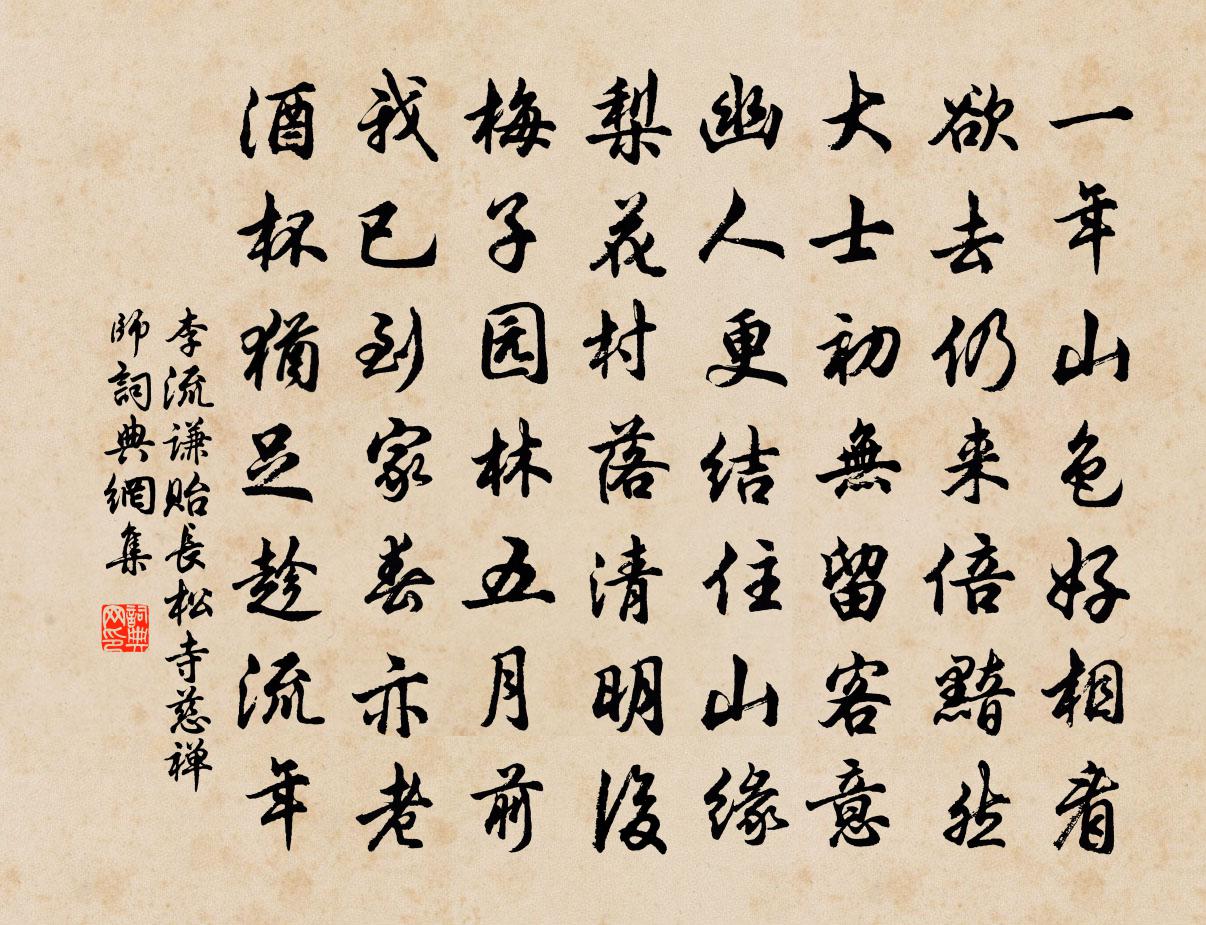 一年山色好相看
欲去仍来倍黯然
大士初無留客意
幽人更結住山緣
梨花村落清明後
梅子园林五月前
我已到家春亦老
酒杯猶足趁流年
李流謙貽長松寺慈禅
師詞典網集
詞典
网印